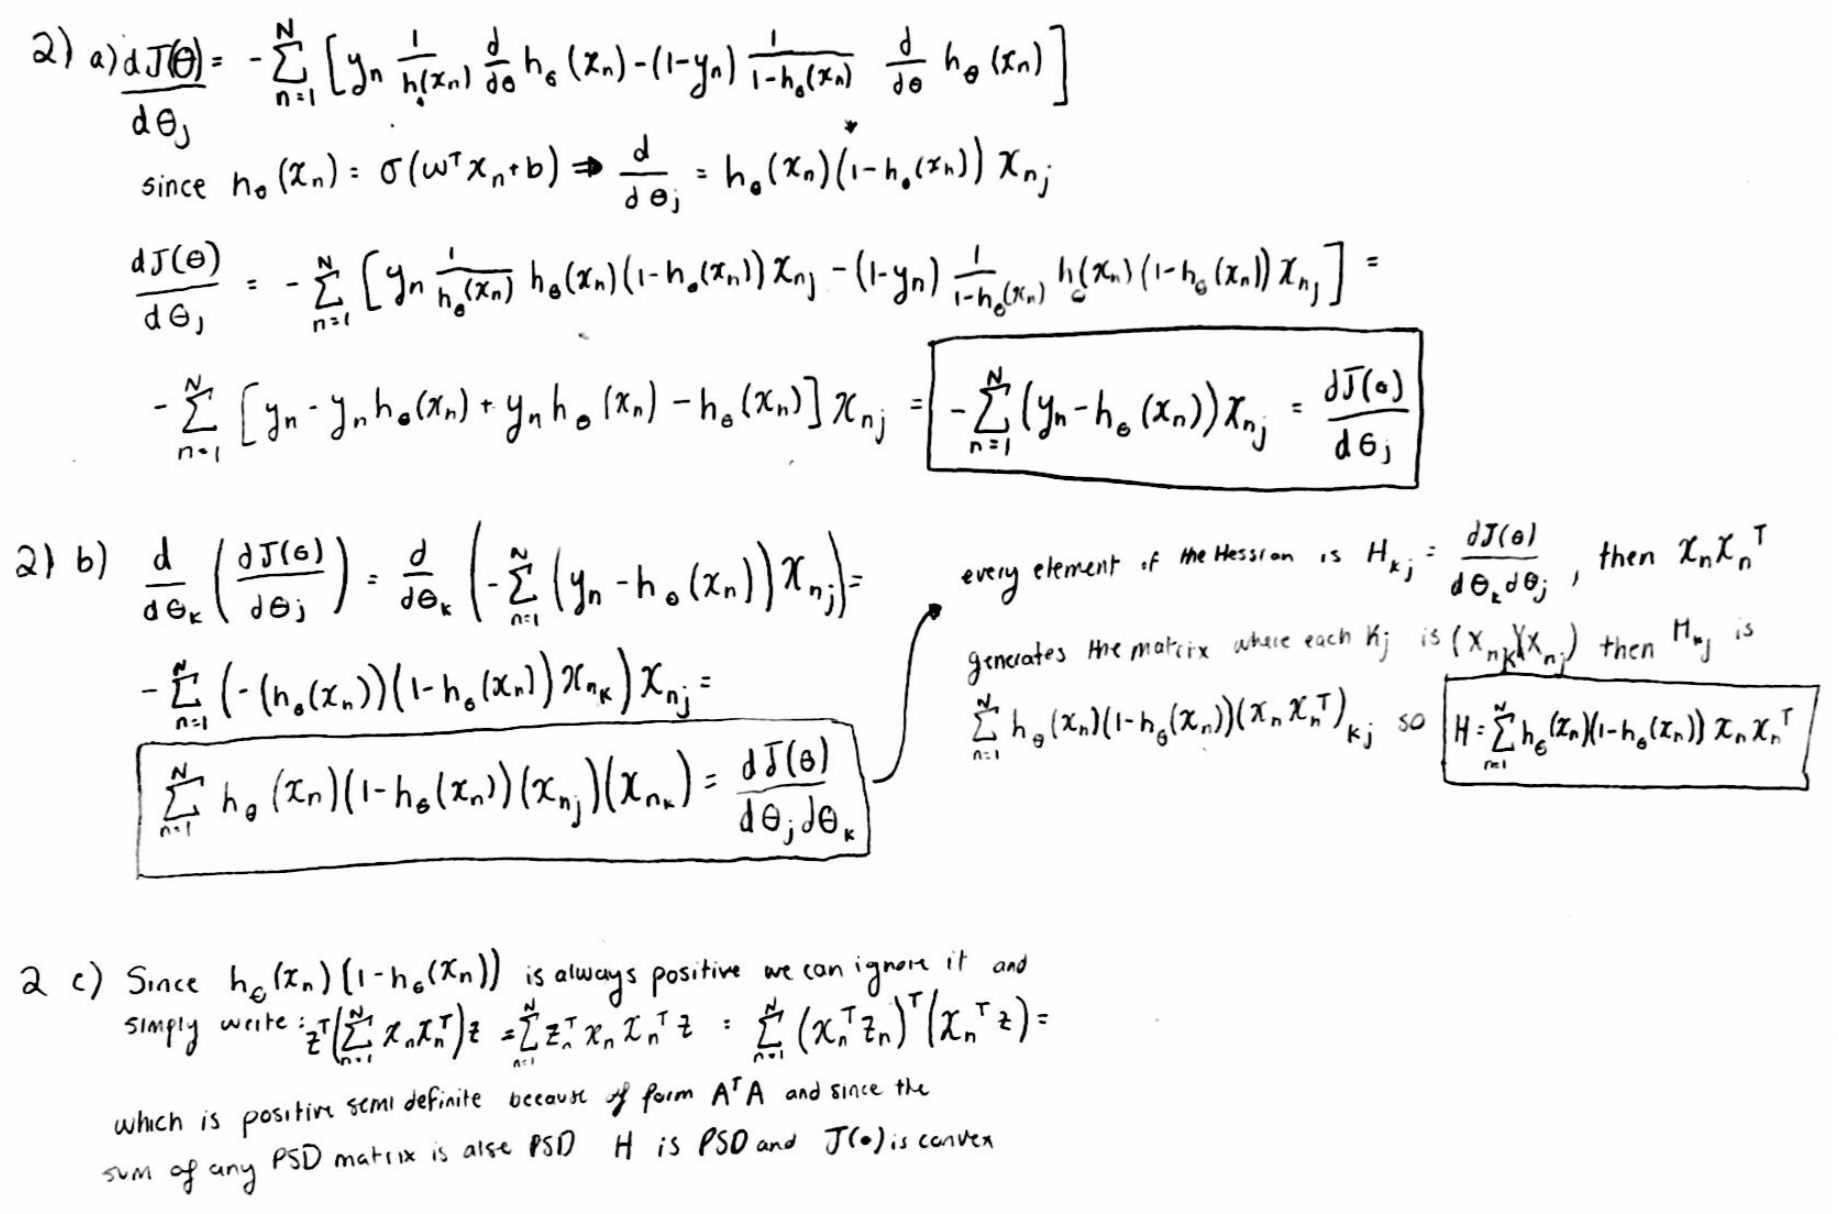 2) a) dJ(θ)/dθ_j = -∑_{n=1}^{N} [y_n 1/h_θ(x_n) d/dθ h_θ(x_n) - (1-y_n) 1/(1-h_θ(x_n)) d/dθ h_θ(x_n)]
since h_θ(x_n) = σ(w^T x_n + b) ⇒ d/dθ_j = h_θ(x_n)(1-h_θ(x_n)) x_{nj}
dJ(θ)/dθ_j = -∑_{n=1}^{N} [y_n 1/h_θ(x_n) h_θ(x_n)(1-h_θ(x_n)) x_{nj} - (1-y_n) 1/(1-h_θ(x_n)) h_θ(x_n)(1-h_θ(x_n)) x_{nj}] =
-∑_{n=1}^{N} [y_n - y_n h_θ(x_n) + y_n h_θ(x_n) - h_θ(x_n)] x_{nj} = -∑_{n=1}^{N} (y_n - h_θ(x_n)) x_{nj} = dJ(θ)/dθ_j
2) b) d/dθ_k (dJ(θ)/dθ_j) = d/dθ_k (-∑_{n=1}^{N} (y_n - h_θ(x_n)) x_{nj}) =
-∑_{n=1}^{N} (-(h_θ(x_n))(1-h_θ(x_n)) x_{nk}) x_{nj} =
∑_{n=1}^{N} h_θ(x_n)(1-h_θ(x_n))(x_{nj})(x_{nk}) = dJ(θ)/dθ_j dθ_k
every element of the Hessian is H_{kj} = dJ(θ)/dθ_k dθ_j, then x_n x_n^T
generates the matrix where each kj is (x_{nk})(x_{nj}) then H_{kj} is
∑_{n=1}^{N} h_θ(x_n)(1-h_θ(x_n))(x_n x_n^T)_{kj} so H = ∑_{n=1}^{N} h_θ(x_n)(1-h_θ(x_n)) x_n x_n^T
2 c) Since h_θ(x_n)(1-h_θ(x_n)) is always positive we can ignore it and
simply write: z^T(∑_{n=1}^{N} x_n x_n^T)z = ∑_{n=1}^{N} z_n^T x_n x_n^T z = ∑_{n=1}^{N} (x_n^T z_n)^T (x_n^T z) =
which is positive semi definite because of form A^T A and since the
sum of any PSD matrix is also PSD H is PSD and J(θ) is convex